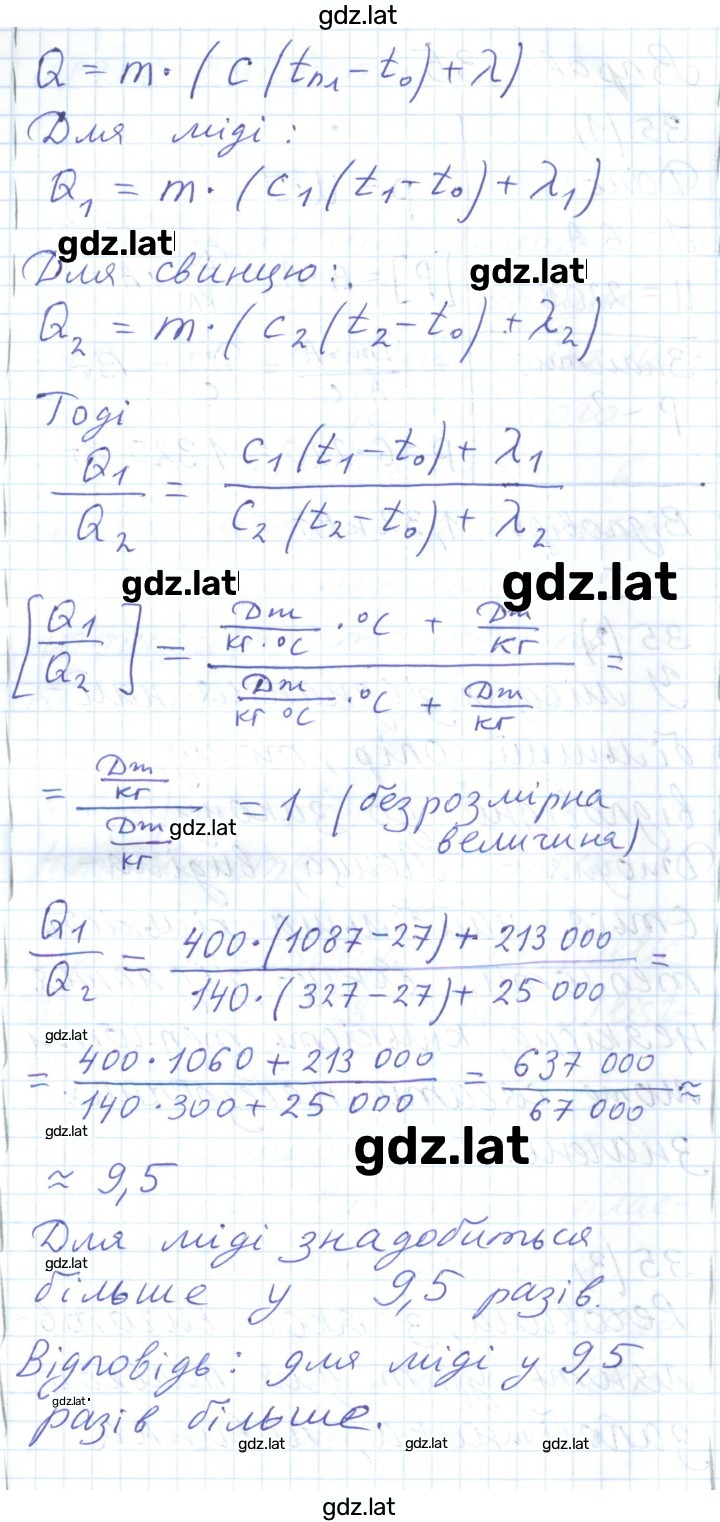 gdz.lat
Q = m·(c(tпл − t₀) + λ)
Для міді:
Q₁ = m·(c₁(t₁ − t₀) + λ₁)
gdz.lat
Для свинцю:
gdz.lat
Q₂ = m·(c₂(t₂ − t₀) + λ₂)
Тоді
Q₁/Q₂ = (c₁(t₁ − t₀) + λ₁)/(c₂(t₂ − t₀) + λ₂)
gdz.lat
gdz.lat
[Q₁/Q₂] = (Дж/(кг·°C)·°C + Дж/кг)/(Дж/(кг °C)·°C + Дж/кг) =
= (Дж/кг)/(Дж/кг) = 1 (безрозмірна
gdz.lat
величина)
Q₁/Q₂ = (400·(1087 − 27) + 213 000)/(140·(327 − 27) + 25 000) =
gdz.lat
= (400·1060 + 213 000)/(140·300 + 25 000) = 637 000/67 000 ≈
gdz.lat
gdz.lat
≈ 9,5
Для міді знадобиться
gdz.lat
більше у 9,5 разів.
Відповідь: для міді у 9,5
gdz.lat
разів більше.
gdz.lat gdz.lat gdz.lat
gdz.lat